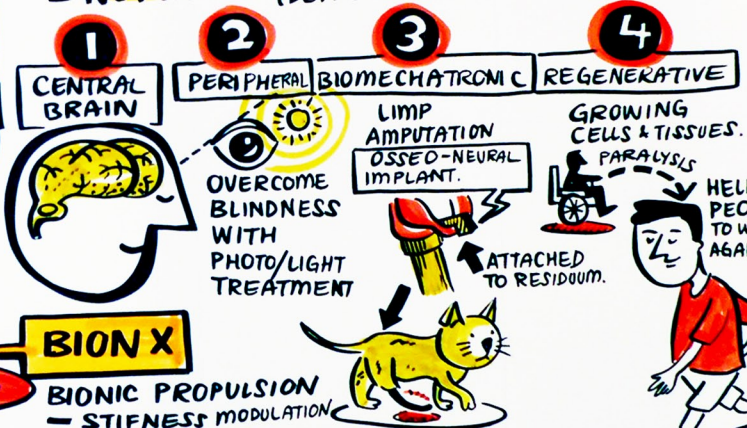 1
CENTRAL
BRAIN
2
PERIPHERAL
OVERCOME
BLINDNESS
WITH
PHOTO/LIGHT
TREATMENT
3
BIOMECHATRONIC
LIMP
AMPUTATION
OSSEO-NEURAL
IMPLANT.
ATTACHED
TO RESIDUUM.
4
REGENERATIVE
GROWING
CELLS & TISSUES.
PARALYSIS
TO
BIONX
BIONIC PROPULSION
— STIFNESS MODULATION